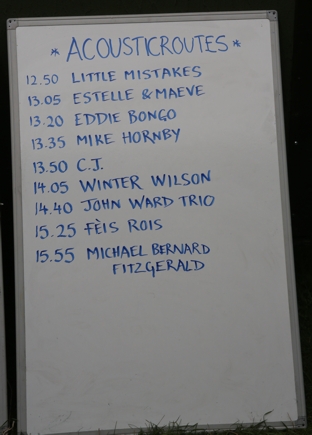 * ACOUSTICROUTES *
12.50 LITTLE MISTAKES
13.05 ESTELLE & MAEVE
13.20 EDDIE BONGO
13.35 MIKE HORNBY
13.50 C.J.
14.05 WINTER WILSON
14.40 JOHN WARD TRIO
15.25 FÈIS ROIS
15.55 MICHAEL BERNARD
FITZGERALD